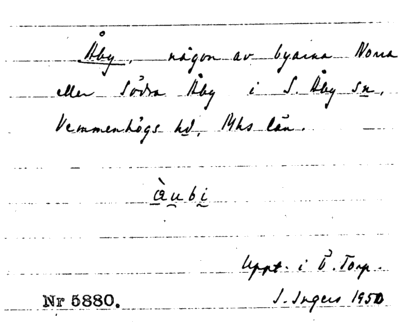 Åby, någon av byarna Norra
eller Södra Åby i S. Åby sn,
Vemmenhögs hd, Mhs län.
àu̯bi̯
Uppt. i Ö. Torp.
I. Ingers 1950
Nr 5880.